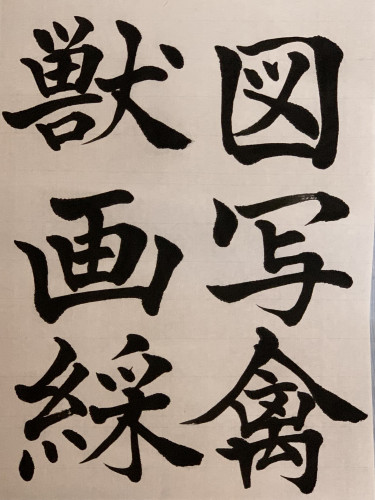 図写禽
獣画綵